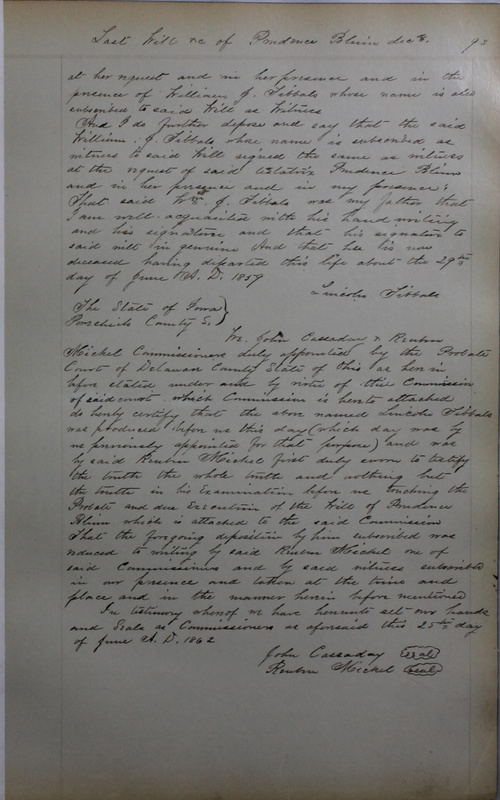 Last Will &c of Prudence Blinn decd. 93
at her request and in her presence and in the
presence of William J. Tibbals whose name is also
subscribed to said Will as Witness
And I do further depose and say that the said
William J. Tibbals whose name is subscribed as
witness to said Will signed the same as witness
at the request of said testatrix Prudence Blinn
and in her presence and in my presence;
That said Wm J. Tibbals was my father that
I am well acquainted with his hand writing
and his signature and that his signature to
said will is genuine And that he is now
deceased having departed this life about the 29th
day of June A.D. 1859
Lincoln Tibbals
The State of Iowa
County S.
We John Cassaday & Reuben
Mickel Commissioners duly appointed by the Probate
Court of Delaware County State of Ohio as herein
before stated under and by virtue of the Commission
of said court which Commission is hereto attached
do hereby certify that the above named Lincoln Tibbals
was produced before us this day (which day was by
us previously appointed for that purpose) and was
by said Reuben Mickel first duly sworn to testify
the truth the whole truth and nothing but
the truth in his Examination before us touching the
Probate and due Execution of the Will of Prudence
Blinn which is attached to the said Commission
That the foregoing deposition by him subscribed was
reduced to writing by said Reuben Mickel one of
said Commissioners and by said witness subscribed
in our presence and taken at the time and
place and in the manner herein before mentioned
In testimony whereof we have hereunto set our hands
and Seals as Commissioners as aforesaid this 25th day
of June A.D. 1862
John Cassaday (seal)
Reuben Mickel (seal)